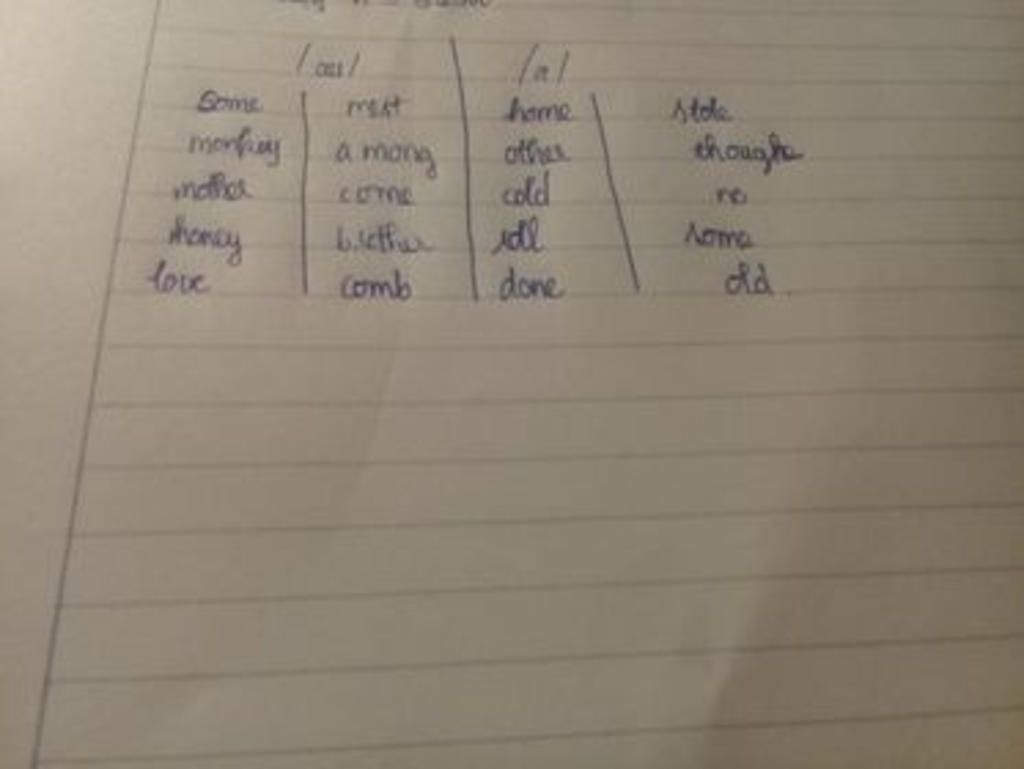 /ou/ /a/
some most home stole
monkey among other though
mother come cold no
money brother sell some
love comb done old